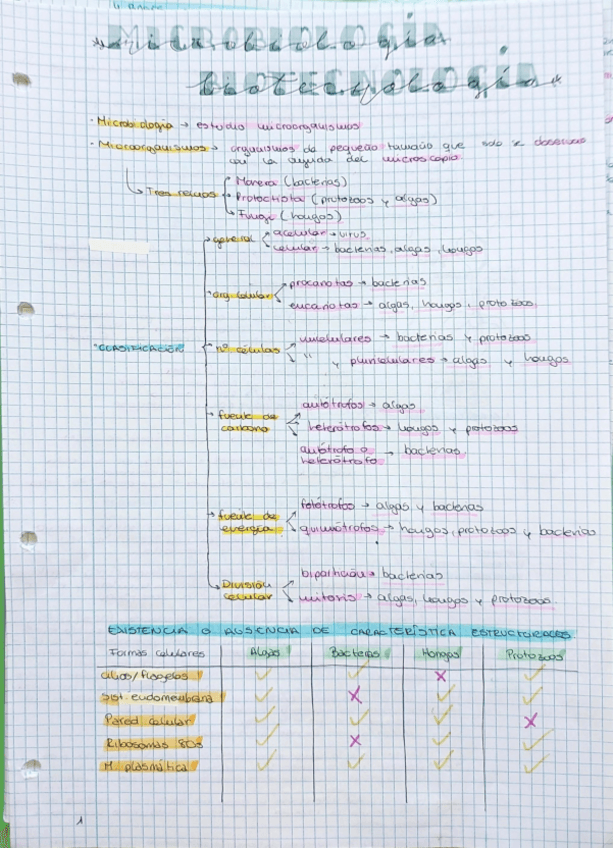 Microbiología
biotecnología
· Microbiología → estudio microorganismos
· Microorganismos → organismos de pequeño tamaño que solo se observan
con la ayuda del microscopio
↳ Tres reinos
Monera (bacterias)
Protoctista (protozoos y algas)
Fungi (hongos)
general
acelular → virus
celular → bacterias, algas, hongos
org celular
procariotas → bacterias
eucariotas → algas, hongos, protozoos
CLASIFICACIÓN
nº células
unicelulares → bacterias y protozoos
" y pluricelulares → algas y hongos
fuente de carbono
autótrofos → algas
heterótrofos → hongos y protozoos
autótrofo o heterótrofo → bacterias
fuente de energía
fotótrofos → algas y bacterias
quimiótrofos → hongos, protozoos y bacterias
División celular
bipartición → bacterias
mitosis → algas, hongos y protozoos
EXISTENCIA O AUSENCIA DE CARACTERÍSTICA ESTRUCTURALES
Formas celulares Algas Bacterias Hongos Protozoos
Cilios/flagelos ✓ ✓ X ✓
Sist. endomembrana ✓ X ✓ ✓
Pared celular ✓ ✓ ✓ X
Ribosomas 80s ✓ X ✓ ✓
M. plasmática ✓ ✓ ✓ ✓
1